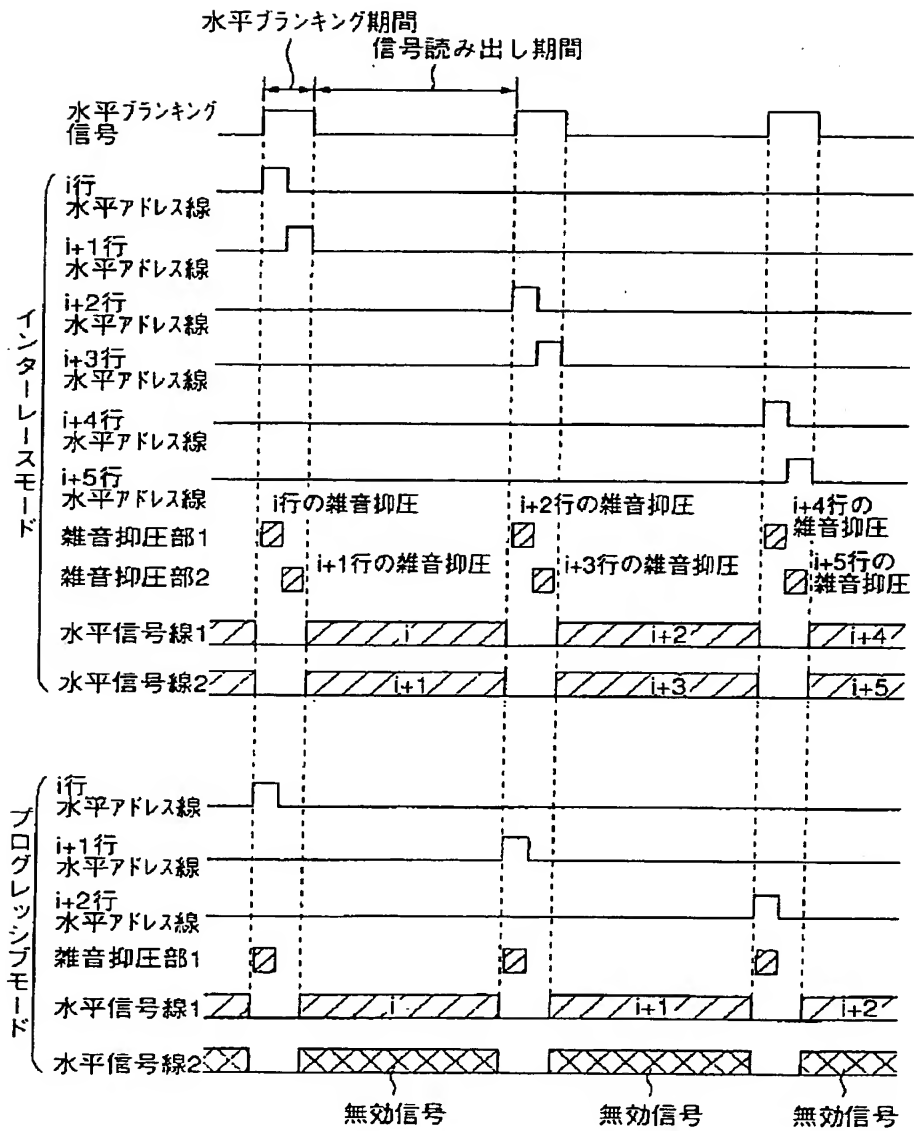 水平ブランキング期間
信号読み出し期間
水平ブランキング
信号
インターレースモード
i行
水平アドレス線
i+1行
水平アドレス線
i+2行
水平アドレス線
i+3行
水平アドレス線
i+4行
水平アドレス線
i+5行
水平アドレス線
i行の雑音抑圧
i+2行の雑音抑圧
i+4行の
雑音抑圧
雑音抑圧部1
i+1行の雑音抑圧
i+3行の雑音抑圧
i+5行の
雑音抑圧
雑音抑圧部2
水平信号線1 i i+2 i+4
水平信号線2 i+1 i+3 i+5
プログレッシブモード
i行
水平アドレス線
i+1行
水平アドレス線
i+2行
水平アドレス線
雑音抑圧部1
水平信号線1 i i+1 i+2
水平信号線2
無効信号 無効信号 無効信号